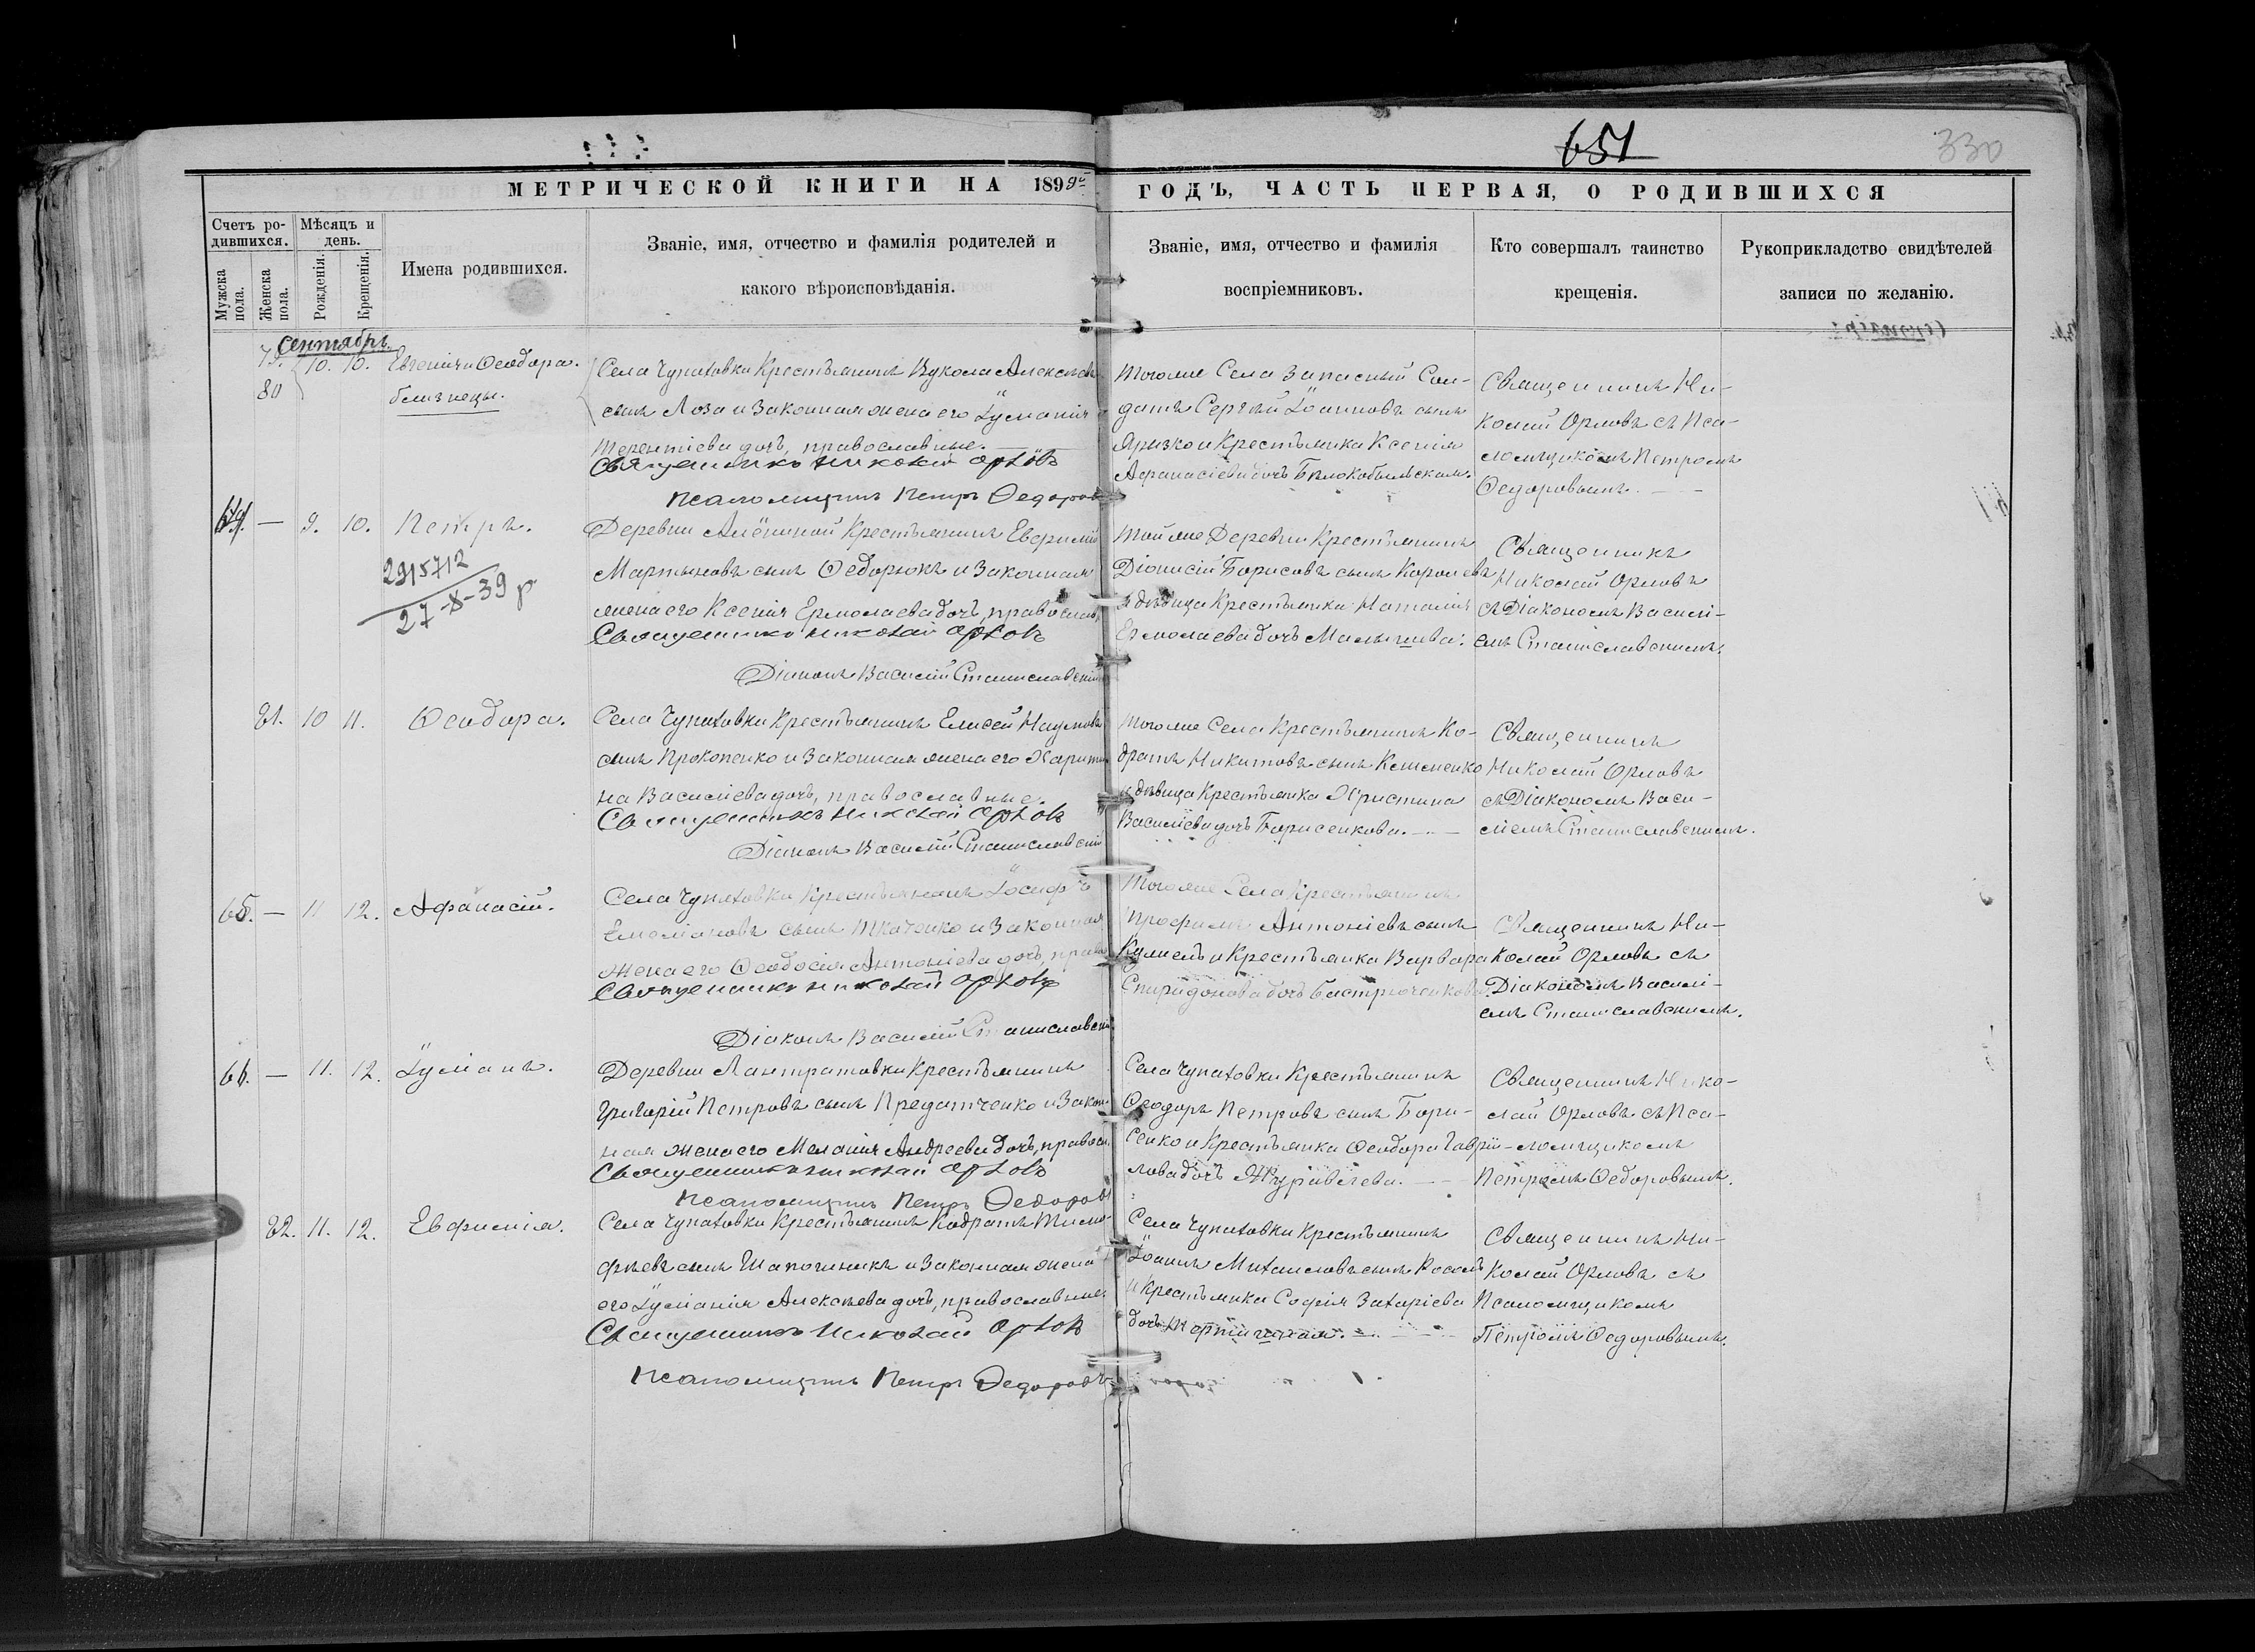 651
330
МЕТРИЧЕСКОЙ КНИГИ НА 1899й
ГОДЪ, ЧАСТЬ ПЕРВАЯ, О РОДИВШИХСЯ
Счетъ ро-
дившихся.
Мужска
пола.
Женска
пола.
Мѣсяцъ и
день.
Рожденія.
Крещенія.
Имена родившихся.
Званіе, имя, отчество и фамилія родителей и
какого вѣроисповѣданія.
Званіе, имя, отчество и фамилія
воспріемниковъ.
Кто совершалъ таинство
крещенія.
Рукоприкладство свидѣтелей
записи по желанію.
Сентябрь.
10. 10. Евгенія и Ѳеодора.
80
близнецы.
Села Чупаховки Крестьянинъ Вукола Алексѣевъ
сынъ Лоза и Законная жена его Іуліанія
Терентіева дочь, православные.
Священникъ Николай Орловъ
Псаломщикъ Петръ Федоровъ
Тогоже Села Запасный Сол-
датъ Сергѣй Іоанновъ сынъ
и Крестьянка Ксенія
Афанасіева дочь Бѣлокобыльская.
Священникъ Ни-
колай Орловъ съ Пса-
ломщикомъ Петромъ
Ѳедоровымъ.
— 9. 10. Петръ.
2915712
27-X-39 р
Деревни Алёшиной Крестьянинъ Евфимій
Мартыновъ сынъ Ѳедорюкъ и Законная
жена его Ксенія Ермолаева дочь, православ.
Священникъ Николай Орловъ
Діаконъ Василій Станиславскій
Тойже Деревни Крестьянинъ
Діонисій Борисовъ сынъ Королевъ
и дѣвица Крестьянка Наталія
Ермолаева дочь Малышева.
Священникъ
Николай Орловъ
съ Діакономъ Василі-
емъ Станиславскимъ.
81. 10 11. Ѳеодора.
Села Чупаховки Крестьянинъ Елисей Наумовъ
сынъ Прокопенко и Законная жена его Харити-
на Василіева дочь, православные.
Священникъ Николай Орловъ
Діаконъ Василій Станиславскій
Тогоже Села Крестьянинъ Ко-
дратъ Никитовъ сынъ
и дѣвица Крестьянка Христина
Василіева дочь Борисенкова.
Священникъ
Николай Орловъ
съ Діакономъ Васи-
ліемъ Станиславскимъ.
65. — 11 12. Афанасій.
Села Чупаховки Крестьянинъ Іосифъ
Емеліановъ сынъ Ткаченко и Законная
жена его Ѳеодосія Антоніева дочь, прав
Священникъ Николай Орловъ
Діаконъ Василій Станиславскій
Тогоже Села Крестьянинъ
Трофимъ Антоніевъ сынъ
и Крестьянка Варвара
Спиридонова дочь
Священникъ Ни-
колай Орловъ съ
Діакономъ Василі-
емъ Станиславскимъ.
66. — 11. 12. Іуліанъ.
Деревни Лантратовки Крестьянинъ
Григорій Петровъ сынъ Предатченко и Закон-
ная жена его Меланія Андреева дочь, правосл.
Священникъ Николай Орловъ
Псаломщикъ Петръ Федоровъ
Села Чупаховки Крестьянинъ
Ѳеодоръ Петровъ сынъ Бори-
сенко и Крестьянка Ѳеодора Гаврії-
лова дочь Журавлева.
Священникъ Нико-
лай Орловъ съ Пса-
ломщикомъ
Петромъ Ѳедоровымъ.
82. 11. 12. Евфимія.
Села Чупаховки Крестьянинъ Кодратъ Тимо-
фѣевъ сынъ и Законная жена
его Іуліанія Алексѣева дочь, православные.
Священникъ Николай Орловъ
Псаломщикъ Петръ Федоровъ
Села Чупаховки Крестьянинъ
Іоаннъ Михаиловъ сынъ
и Крестьянка Софія Захаріева
дочь
Священникъ Ни-
колай Орловъ съ
Псаломщикомъ
Петромъ Ѳедоровымъ.